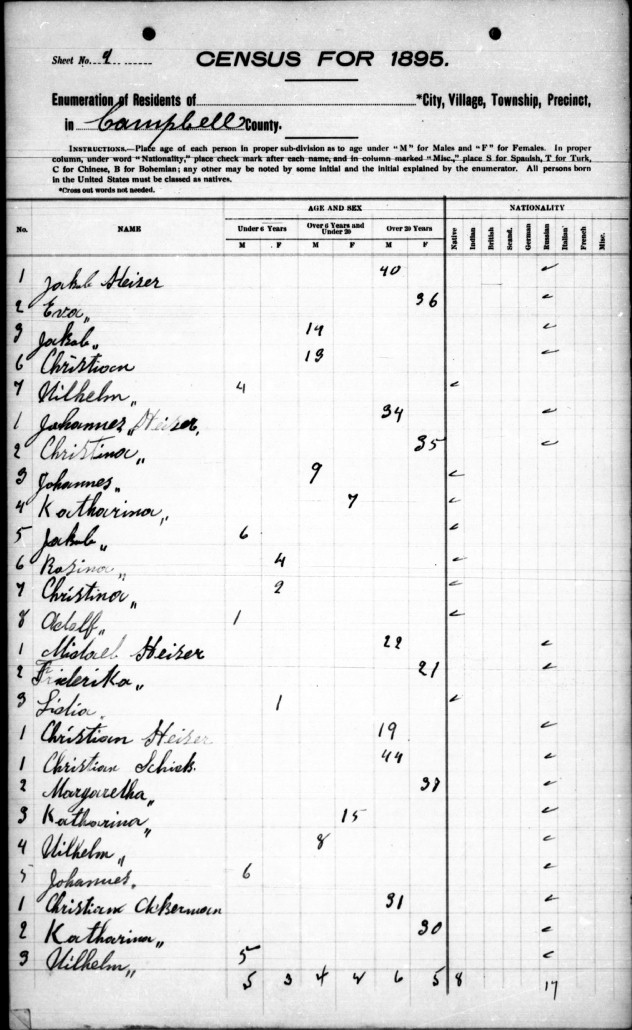 Sheet No. 9
CENSUS FOR 1895.
Enumeration of Residents of *City, Village, Township, Precinct,
in Campbell County.
INSTRUCTIONS.—Place age of each person in proper sub-division as to age under "M" for Males and "F" for Females. In proper
column, under word "Nationality," place check mark after each name, and in column marked "Misc.," place S for Spanish, T for Turk,
C for Chinese, B for Bohemian; any other may be noted by some initial and the initial explained by the enumerator. All persons born
in the United States must be classed as natives.
*Cross out words not needed.
AGE AND SEX NATIONALITY
No. NAME Under 6 Years Over 6 Years and Under 20 Over 20 Years Native Indian British Scand. German Russian Italian French Misc.
M F M F M F
1 Jakob Heiser 40 ✓
2 Eva " 36 ✓
3 Jakob " 14 ✓
6 Christian 13 ✓
7 Wilhelm " 4 ✓
1 Johannes Heiser, 34 ✓
2 Christina " 35 ✓
3 Johannes " 9 ✓
4 Katharina " 7 ✓
5 Jakob " 6 ✓
6 Rosina " 4 ✓
7 Christina " 2 ✓
8 Adolf " 1 ✓
1 Michael Heiser 22 ✓
2 Friederika " 21 ✓
3 Lidia " 1 ✓
1 Christian Heiser 19 ✓
1 Christian Schick 44 ✓
2 Margaretha " 37 ✓
3 Katharina " 15 ✓
4 Wilhelm " 8 ✓
5 Johannes " 6 ✓
1 Christian Ackerman 31 ✓
2 Katharina " 30 ✓
3 Wilhelm " 5 ✓
5 3 4 2 6 5 8 17